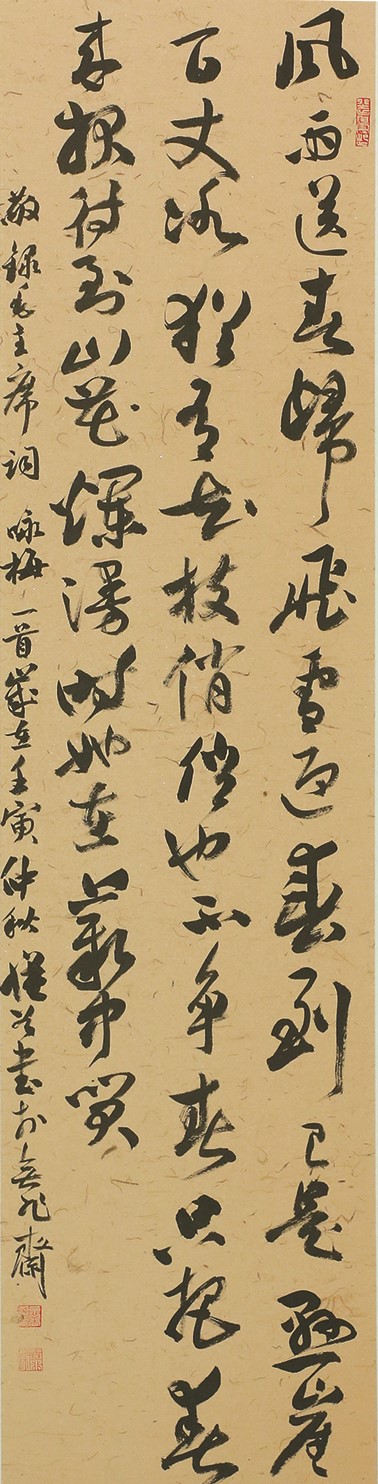 風雨送春歸飛雪迎春到已是懸崖
百丈冰猶有花枝俏俏也不爭春只把春
來報待到山花爛漫時她在叢中笑
敬録毛主席詞 咏梅一首歲在壬寅仲秋 書於 齋